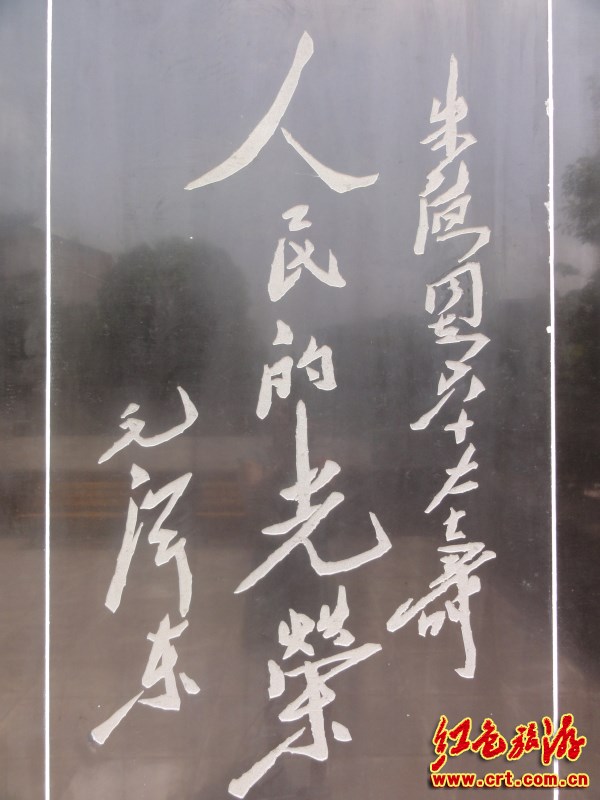 朱德同志六十大壽
人民的光榮
毛泽东
红色旅游
www.crt.com.cn